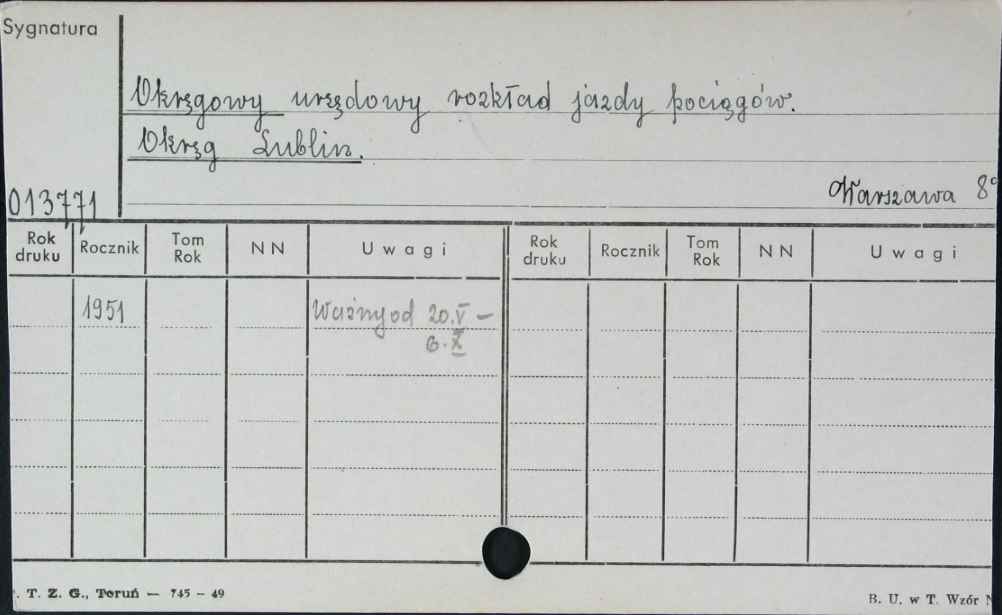 Sygnatura
Okręgowy urzędowy rozkład jazdy pociągów.
Okręg Lublin.
Warszawa 8°
013771
Rok druku Rocznik Tom Rok NN Uwagi Rok druku Rocznik Tom Rok NN Uwagi
1951 Ważny od 20.V –
6.X
T. Z. G., Toruń — 745 – 49
B. U. w T. Wzór